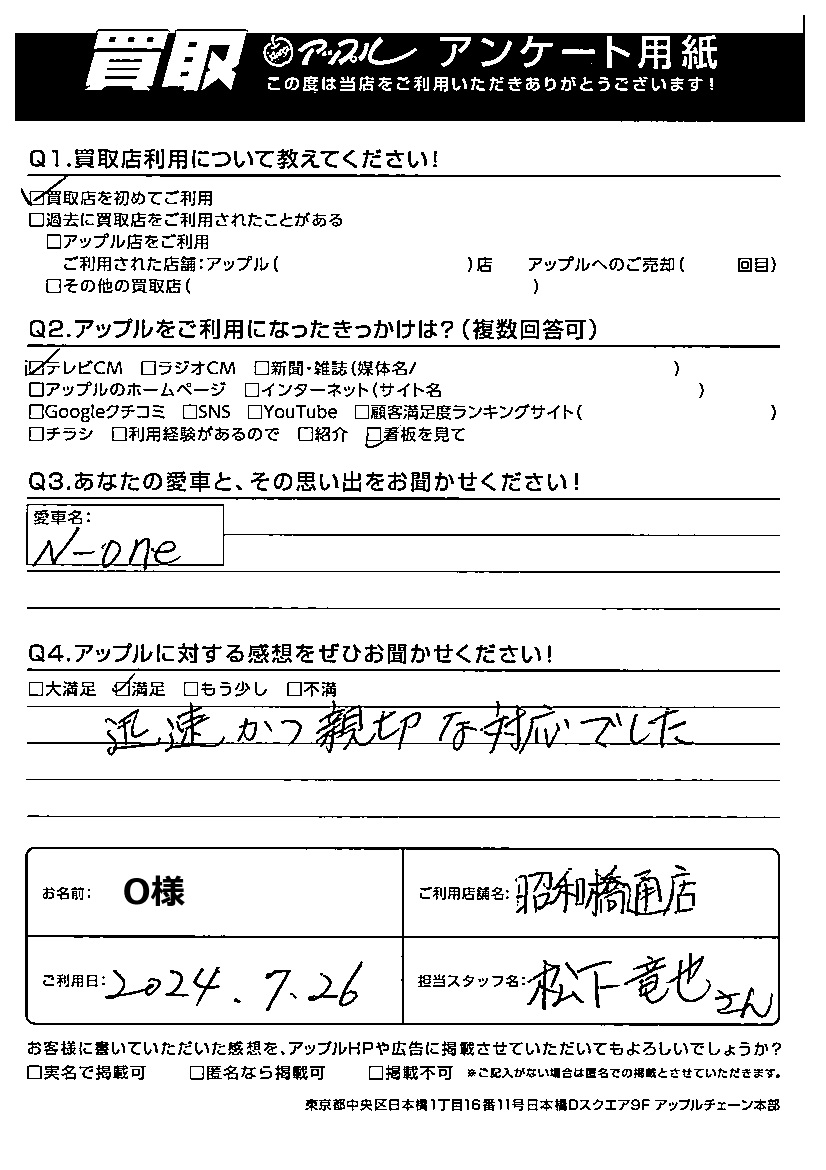 買取 アップル アンケート用紙
この度は当店をご利用いただきありがとうございます!
Q1.買取店利用について教えてください!
☑買取店を初めてご利用
□過去に買取店をご利用されたことがある
□アップル店をご利用
ご利用された店舗:アップル( )店 アップルへのご売却( 回目)
□その他の買取店( )
Q2.アップルをご利用になったきっかけは?(複数回答可)
☑テレビCM □ラジオCM □新聞・雑誌(媒体名/ )
□アップルのホームページ □インターネット(サイト名 )
□Googleクチコミ □SNS □YouTube □顧客満足度ランキングサイト( )
□チラシ □利用経験があるので □紹介 ☑看板を見て
Q3.あなたの愛車と、その思い出をお聞かせください!
愛車名:
N-one
Q4.アップルに対する感想をぜひお聞かせください!
□大満足 ☑満足 □もう少し □不満
迅速かつ親切な対応でした
お名前: O様 ご利用店舗名: 昭和橋通店
ご利用日: 2024.7.26 担当スタッフ名: 松下竜也さん
お客様に書いていただいた感想を、アップルHPや広告に掲載させていただいてもよろしいでしょうか?
□実名で掲載可 □匿名なら掲載可 □掲載不可 ※ご記入がない場合は匿名での掲載とさせていただきます。
東京都中央区日本橋1丁目16番11号日本橋Dスクエア9F アップルチェーン本部